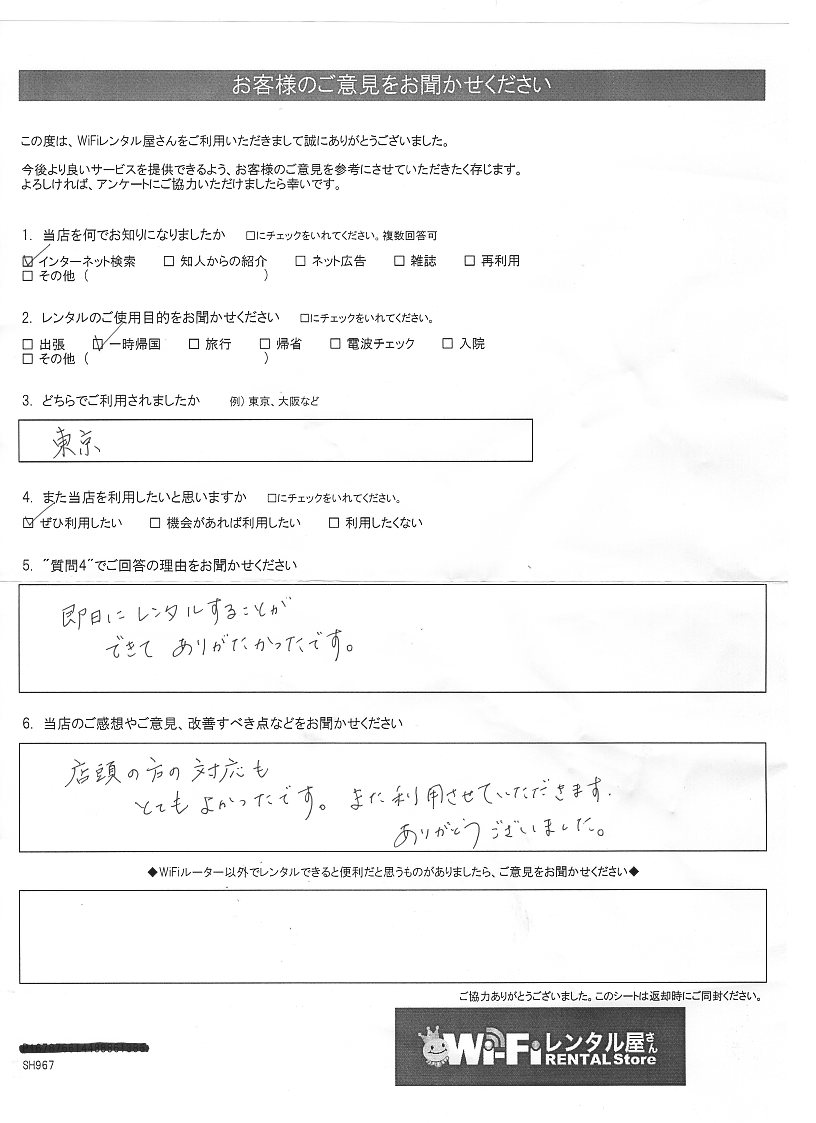 お客様のご意見をお聞かせください
この度は、WiFiレンタル屋さんをご利用いただきまして誠にありがとうございました。
今後より良いサービスを提供できるよう、お客様のご意見を参考にさせていただきたく存じます。
よろしければ、アンケートにご協力いただけましたら幸いです。
1. 当店を何でお知りになりましたか □にチェックをいれてください。複数回答可
☑ インターネット検索 □ 知人からの紹介 □ ネット広告 □ 雑誌 □ 再利用
□ その他 ( )
2. レンタルのご使用目的をお聞かせください □にチェックをいれてください。
□ 出張 ☑ 一時帰国 □ 旅行 □ 帰省 □ 電波チェック □ 入院
□ その他 ( )
3. どちらでご利用されましたか 例) 東京、大阪など
東京
4. また当店を利用したいと思いますか □にチェックをいれてください。
☑ ぜひ利用したい □ 機会があれば利用したい □ 利用したくない
5. ”質問4”でご回答の理由をお聞かせください
即日にレンタルすることが
できて ありがたかったです。
6. 当店のご感想やご意見、改善すべき点などをお聞かせください
店頭の方の対応も
とてもよかったです。また利用させていただきます.
ありがとうございました。
◆WiFiルーター以外でレンタルできると便利だと思うものがありましたら、ご意見をお聞かせください◆
ご協力ありがとうございました。このシートは返却時にご同封ください。
Wi-Fiレンタル屋さん
RENTAL Store
SH967